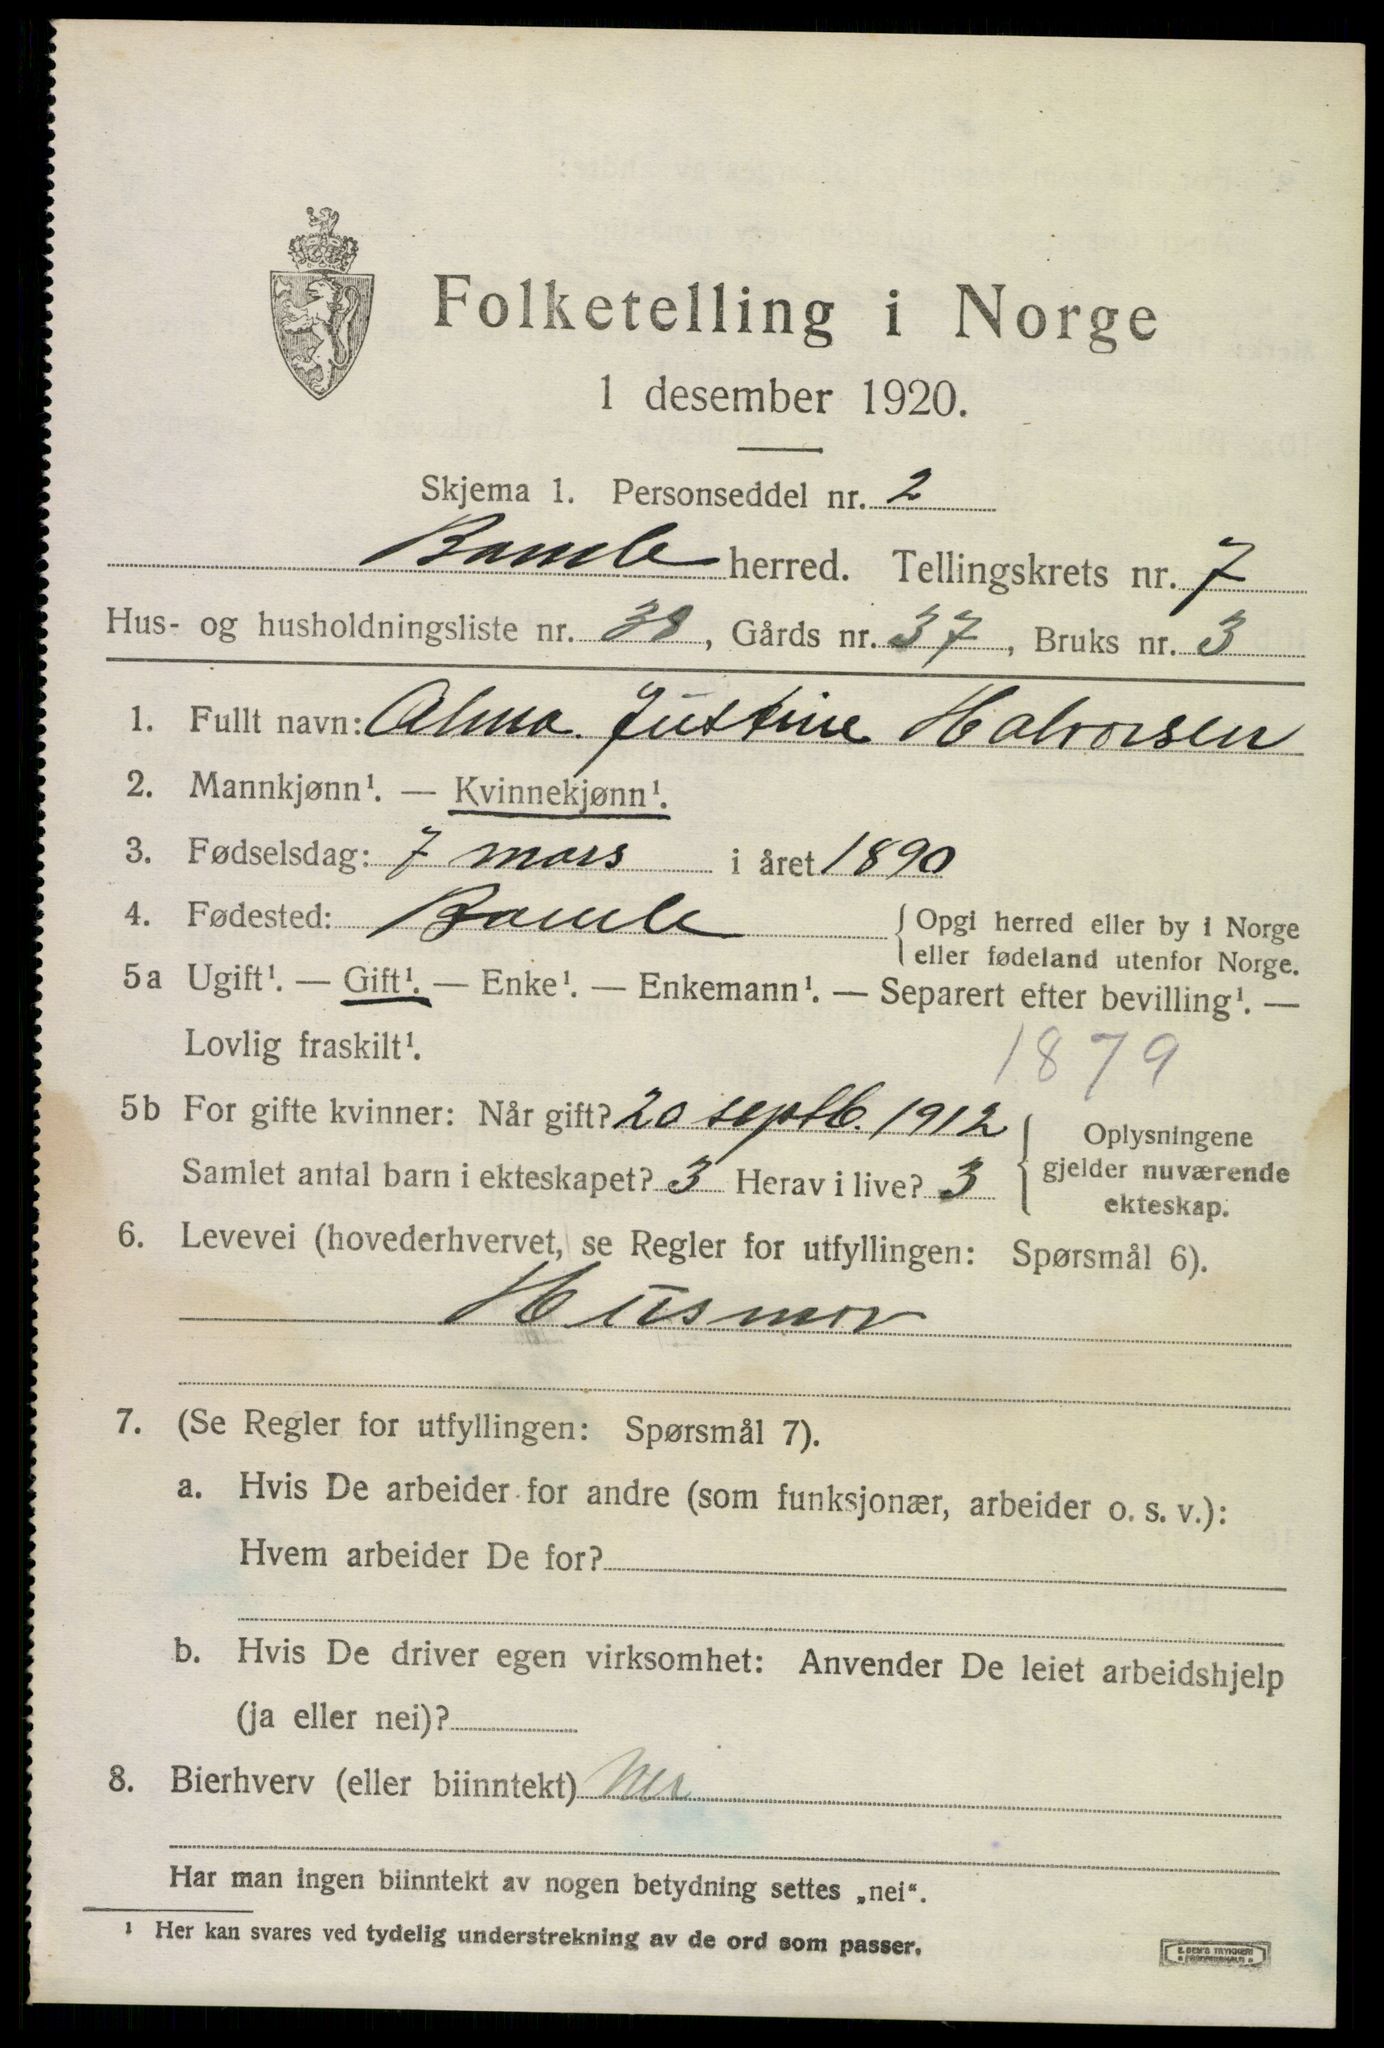 Folketelling i Norge
1 desember 1920.
Skjema 1. Personseddel nr. 2
Bamle herred. Tellingskrets nr. 7
Hus- og husholdningsliste nr. 38, Gårds nr. 37, Bruks nr. 3
1. Fullt navn: Alma Justine Halvorsen
2. Mannkjønn¹. — Kvinnekjønn¹.
3. Fødselsdag: 7 mars i året 1890
4. Fødested: Bamle { Opgi herred eller by i Norge
eller fødeland utenfor Norge.
5a Ugift¹. — Gift¹. — Enke¹. — Enkemann¹. — Separert efter bevilling¹. —
Lovlig fraskilt¹.
1879
5b For gifte kvinner: Når gift? 20 septb. 1912 { Oplysningene
Samlet antal barn i ekteskapet? 3 Herav i live? 3 gjelder nuværende
ekteskap.
6. Levevei (hovederhvervet, se Regler for utfyllingen: Spørsmål 6).
Husmor
7. (Se Regler for utfyllingen: Spørsmål 7).
a. Hvis De arbeider for andre (som funksjonær, arbeider o. s. v.):
Hvem arbeider De for?
b. Hvis De driver egen virksomhet: Anvender De leiet arbeidshjelp
(ja eller nei)?
8. Bierhverv (eller biinntekt) Nei
Har man ingen biinntekt av nogen betydning settes „nei“.
¹ Her kan svares ved tydelig understrekning av de ord som passer.